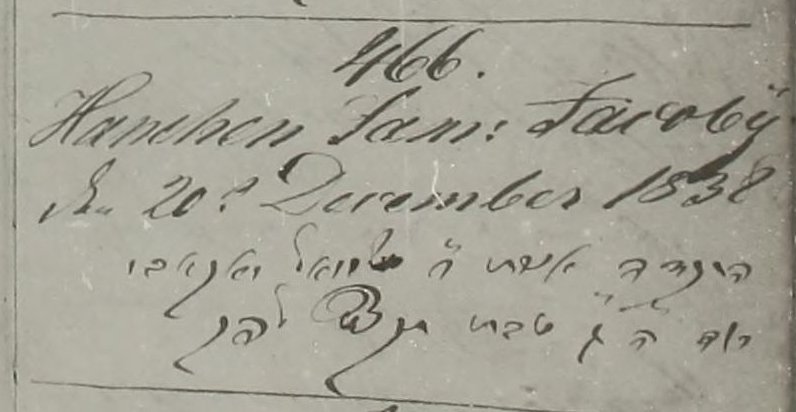 466.
Hanchen Sam: Jacobÿ
d. 20t December 1838
הינדה אשת ה׳ שמואל יאקאבי
יום ה׳ ג׳ טבת תקצט לפק